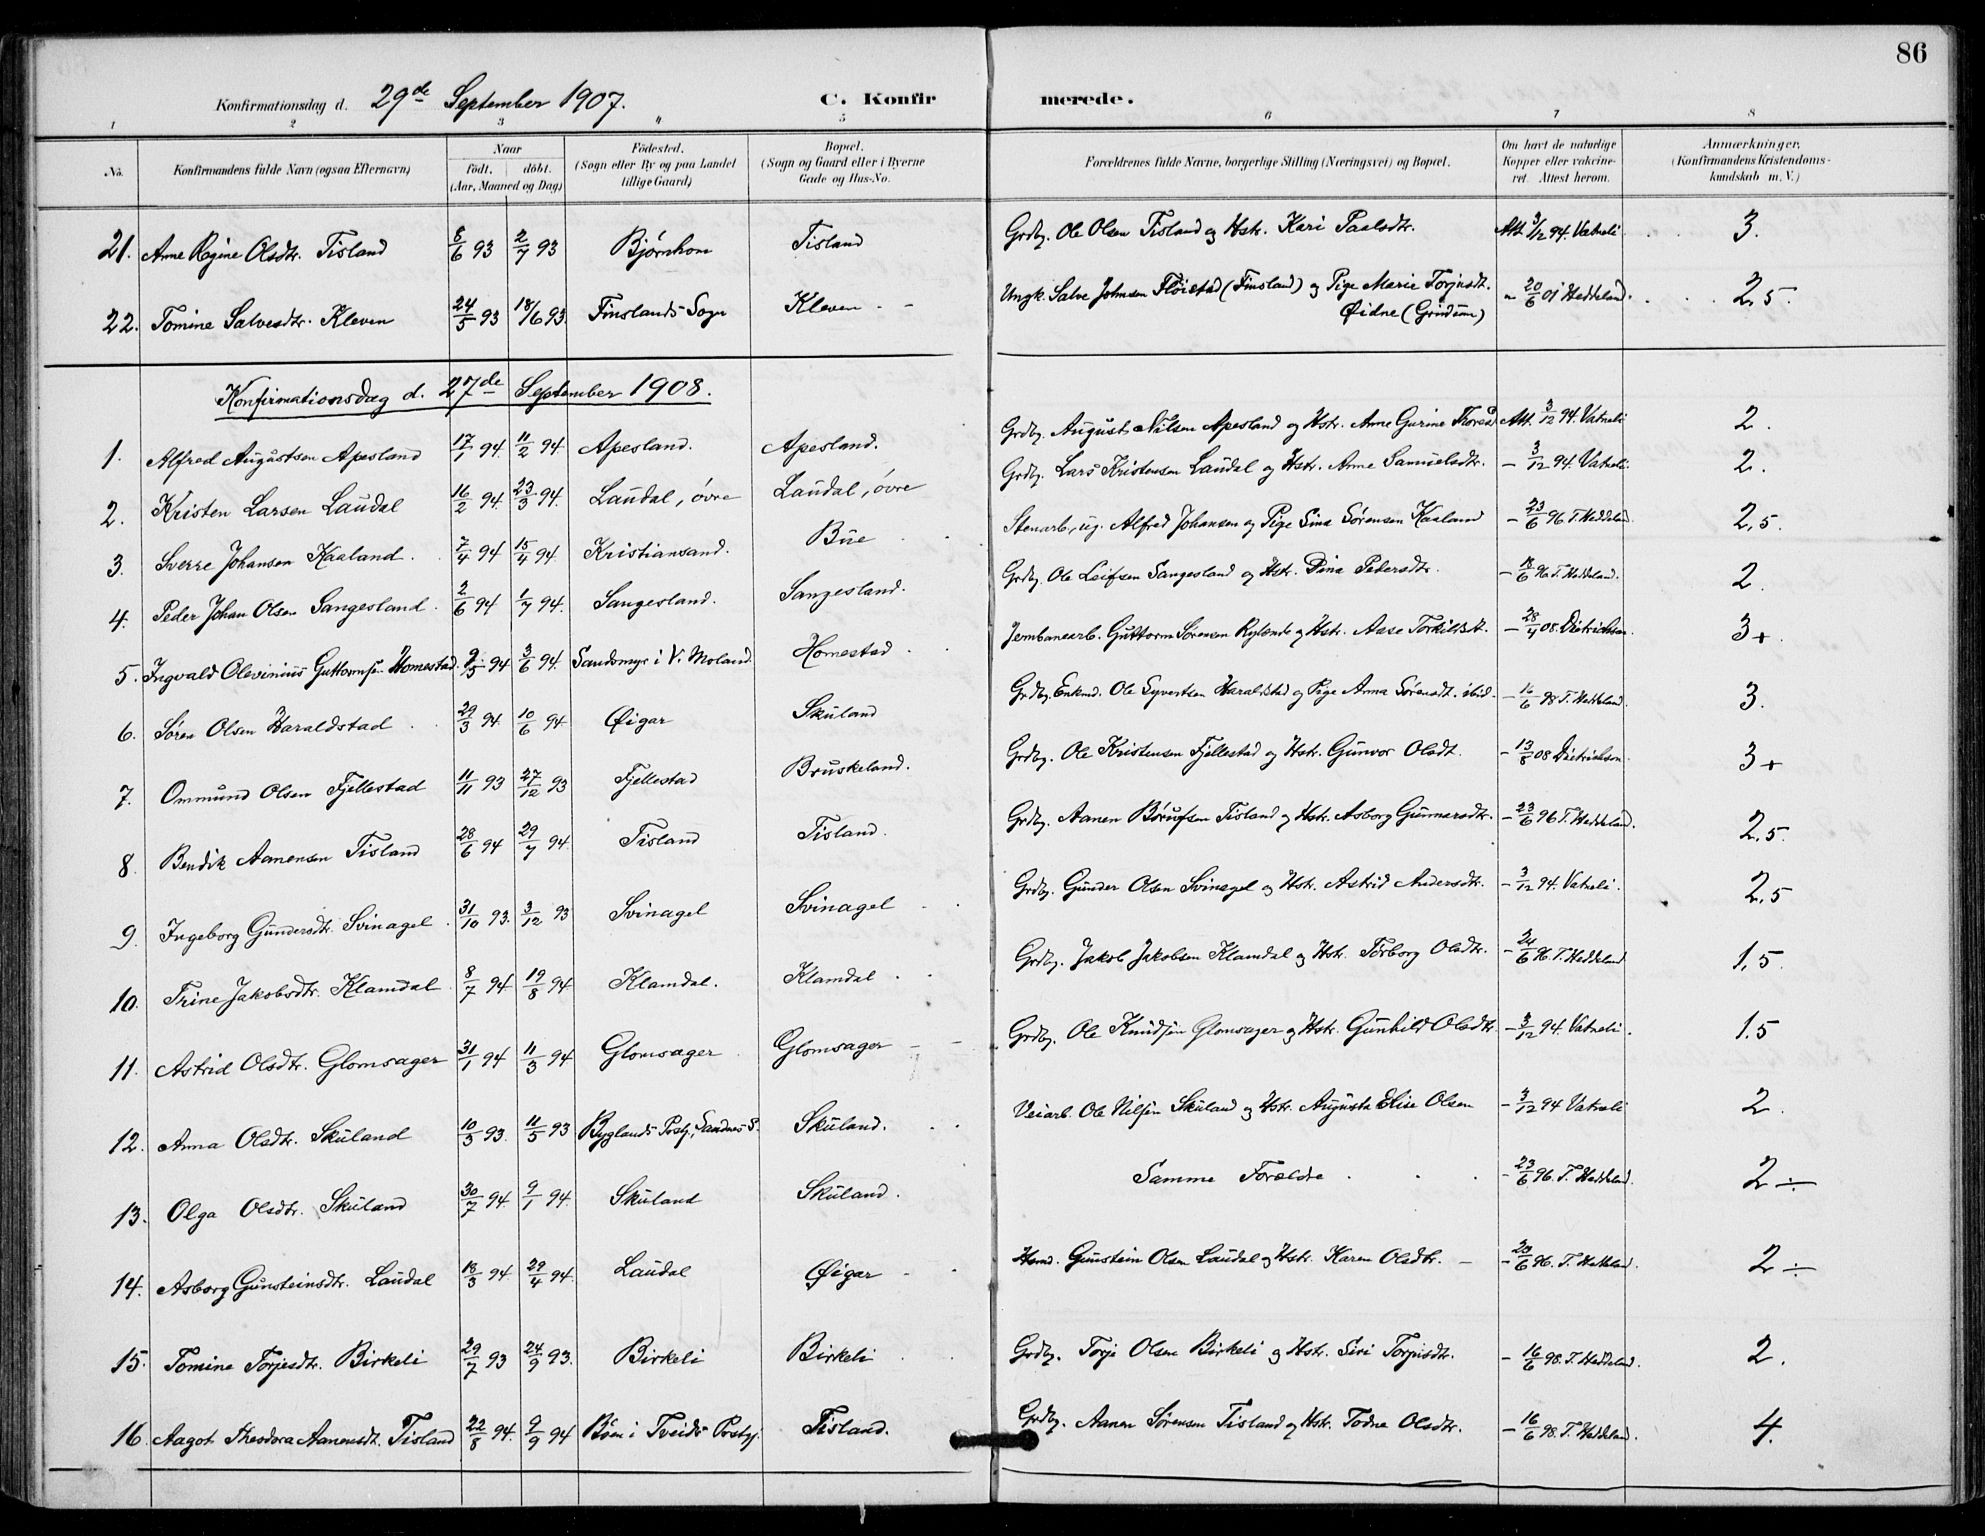 86
Konfirmationsdag d. 29de September 1907. C. Konfirmerede.
1 2 3 4 5 6 7 8
No. Konfirmandens fulde Navn (ogsaa Efternavn) Naar födt, döbt. (Aar, Maaned og Dag) Födested. (Sogn eller By og paa Landet tillige Gaard) Bopæl. (Sogn og Gaard eller i Byerne Gade og Hus-No. Forældrenes fulde Navne, borgerlige Stilling (Næringsvei) og Bopæl. Om havt de naturlige Kopper eller vakcineret. Attest herom. Anmærkninger, (Konfirmandens Kristendomskundskab m. V.)
21. Anne Regine Olsdtr. Tisland 8/6 93 2/7 93 Bjørnhom Tisland Grdbg. Ole Olsen Tisland og Hstr. Kari Paalsdtr. Att. 3/12 94. Vatneli 3.
22. Tomine Salvesdtr. Kleven 24/5 93 18/6 93. Finslands Sogn Kleven Ungk. Salve Johnsen Fløistad (Finsland) og Pige Marie Torjusdt. Øidne (Grindum) - 20/6 01 Heddeland. 2,5.
Konfirmationsdag d. 27de September 1908.
1. Alfred Augustsen Apesland 17/1 94. 11/2 94. Apesland. Apesland. Grdbg. August Nilsen Apesland og Hstr. Anne Gurine Att. 3/12 94. Vatneli 2.
2. Kristen Larsen Laudal 16/2 94. 23/3 94. Laudal, övre Laudal, övre Grdbg. Lars Kristensen Laudal og Hstr. Anne Samuelsdtr. - 3/12 94. Vatneli. 2.
3. Sverre Johansen Kaaland. 7/4 94 15/4 94. Kristiansand. Bue Stenarb., ug. Alfred Johansen og Pige Sina Sørensen Kaaland - 23/6 96 T. Heddeland. 2,5.
4. Peder Johan Olsen Sangesland. 2/6 94 1/7 94. Sangesland. Sangesland. Grdbg. Ole Leifsen Sangesland og Hstr. Dina Pedersdtr. - 18/6 96 T. Heddeland. 2.
5. Ingvald Olevinius Guttormsn. Homestad. 9/5 94 3/6 94. Sandsmyr i V. Moland Homestad Jernbanearb. Guttorm Sørensen Rylende og Hstr. Aase Torkildsdt. - 28/4 08. Dietrichson. 3+.
6. Søren Olsen Haraldstad 29/3 94. 10/6 94. Øigar Skuland Grdbg. Enkmd. Ole Syvertsen Haraldstad og Pige Anna Sørensdt. ibid. - 16/6 98 T. Heddeland. 3.
7. Ommund Olsen Fjellestad 11/11 93 27/12 93 Fjellestad Bruskeland. Grdbg. Ole Kristensen Fjellestad og Hstr. Gunvor Olsdt. - 13/8 08 Dietrichson. 3+
8. Bendik Aanensen Tisland 28/6 94 29/7 94. Tisland Tisland. Grdbg. Aanen Børufsen Tisland og Hstr. Asborg Gunnarsdtr. - 23/6 96 T. Heddeland. 2,5.
9. Ingeborg Gundersdtr. Svinagel 31/10 93. 3/12 93 Svinagel Svinagel Grdbg. Gunder Olsen Svinagel og Hstr. Astrid Andersdtr. - 3/12 94. Vatneli. 2,5
10. Trine Jakobsdtr. Klamdal 8/7 94. 19/8 94 Klamdal. Klamdal Grdbg. Jakob Jakobsen Klamdal og Hstr. Torborg Olsdtr. - 24/6 96. T. Heddeland 1,5.
11. Astrid Olsdtr. Glomsager 31/1 94 11/3 94 Glomsager Glomsager Grdbg. Ole Knudsen Glomsager og Hstr. Gunhild Olsdtr. - 3/12 94 Vatneli. 1.5
12. Anna Olsdtr. Skuland 10/3 93. 11/5 93 Byglands Pstgj., Sandnes S. Skuland. Veiarb. Ole Nilsen Skuland og Hstr. Augusta Elise Olsen - 3/12 94 Vatneli 2.
13. Olga Olsdtr. Skuland 30/7 94. 9/1 94. Skuland Skuland. Samme Forældre - 23/6 96. T. Heddeland. 2 ÷
14. Asborg Gunsteinsdtr. Laudal 18/3 94 29/4 94. Laudal Øigar Hsmd. Gunstein Olsen Laudal og Hstr. Karen Olsdtr. - 23/6 96. T. Heddeland. 2 ÷
15. Tomine Torjesdtr. Birkeli 29/7 93 24/9 93. Birkeli Birkeli Grdbg. Torje Olsen Birkeli og Hstr. Siri Torjusdtr. - 16/6 98. T. Heddeland. 2.
16. Aagot Theodora Aanensdt. Tisland 22/8 94. 9/9 94 Böen i Tveids Pstgj. Tisland. Grdbg. Aanen Sørensen Tisland og Hstr. Todne Olsdtr. - 16/6 98. T. Heddeland. 4.